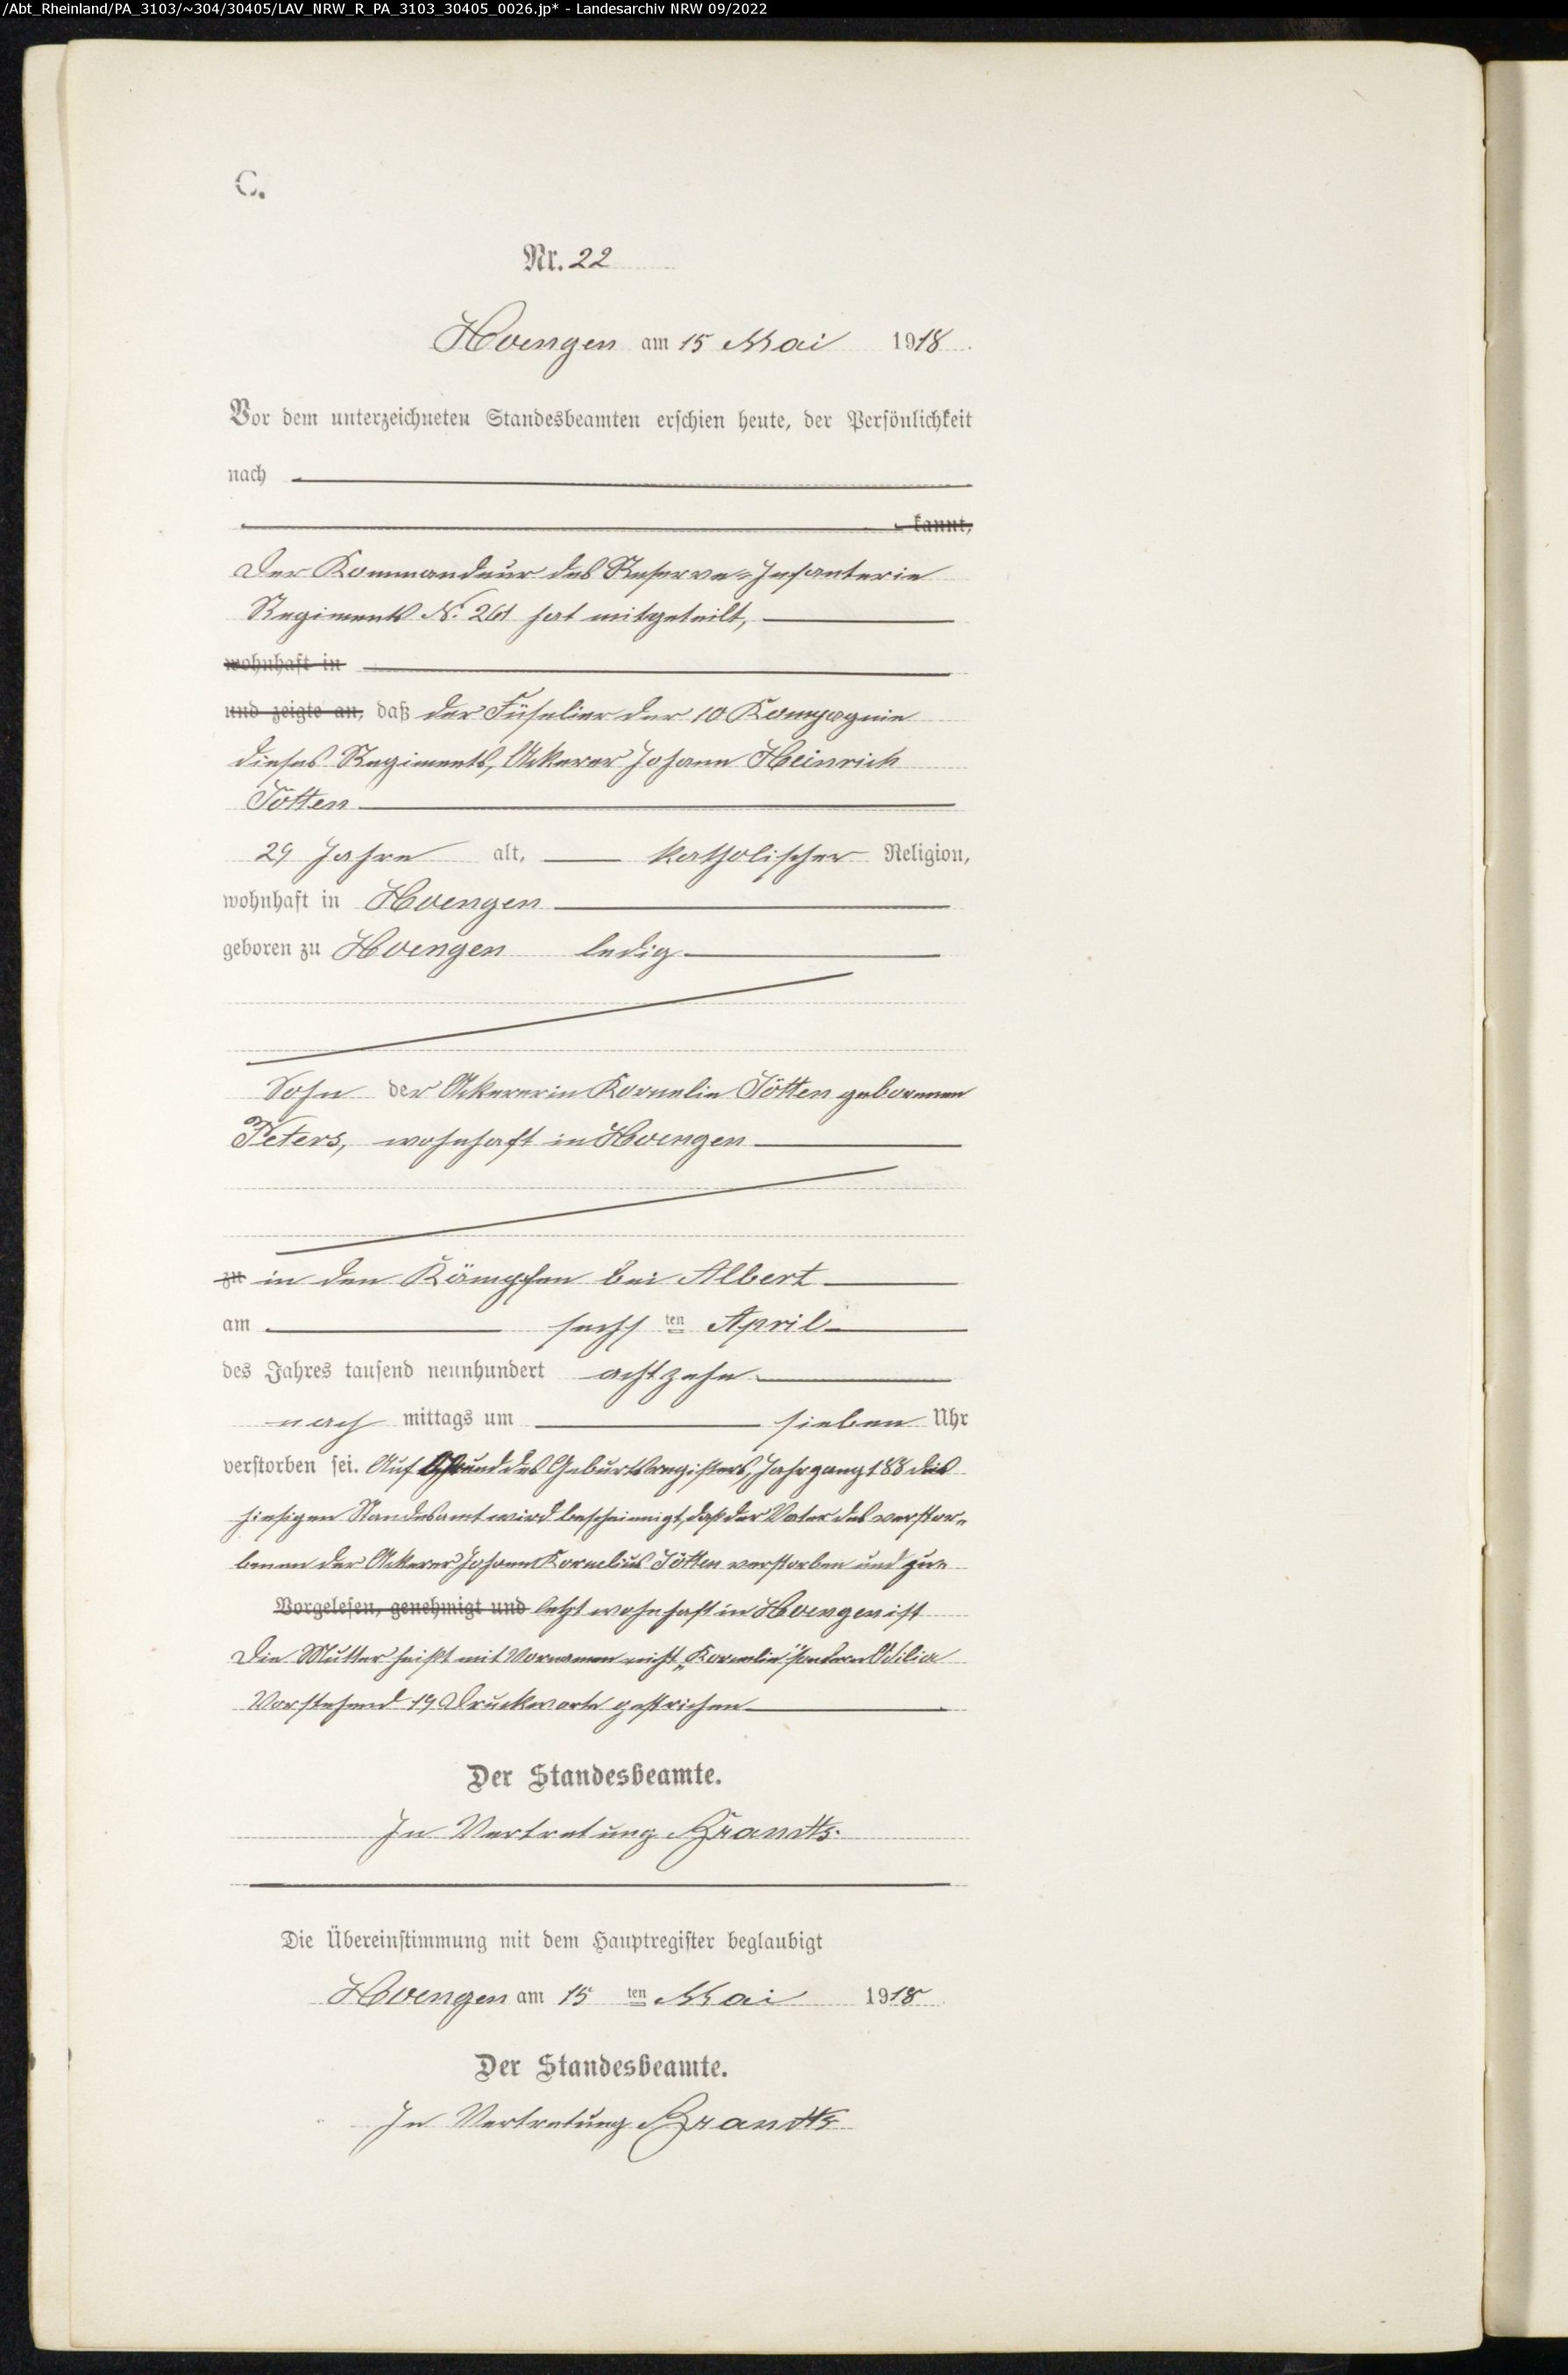 /Abt_Rheinland/PA_3103/~304/30405/LAV_NRW_R_PA_3103_30405_0026.jp* - Landesarchiv NRW 09/2022
C.
Nr. 22
Hoengen am 15 Mai 1918.
Vor dem unterzeichneten Standesbeamten erschien heute, der Persönlichkeit
nach
kannt,
Der Kommandeur des Reserve-Infanterie
Regiments N. 261 hat mitgeteilt,
wohnhaft in
und zeigte an, daß der Füselier der 10 Kompagnie
dieses Regiments, Ackerer Johann Heinrich
Tötten
29 Jahre alt, katholischer Religion,
wohnhaft in Hoengen
geboren zu Hoengen ledig
Sohn der Ackererin Kornelia Tötten geborenen
Peters, wohnhaft in Hoengen
zu in den Kämpfen bei Albert
am sechs ten April
des Jahres tausend neunhundert achtzehn
nach mittags um sieben Uhr
verstorben sei. Auf Grund des Geburtsregisters, Jahrgang 188 des
hiesigen Standesamt wird bescheinigt, daß der Vater des verstor-
benen der Ackerer Johann Kornelius Tötten verstorben und zu-
Vorgelesen, genehmigt und letzt wohnhaft in Hoengen ist
Die Mutter heißt mit Vornamen nicht „Kornelia" sondern Odilia
Vorstehend 19 Druckworte gestrichen
Der Standesbeamte.
In Vertretung
Die Übereinstimmung mit dem Hauptregister beglaubigt
Hoengen am 15 ten Mai 1918
Der Standesbeamte.
In Vertretung